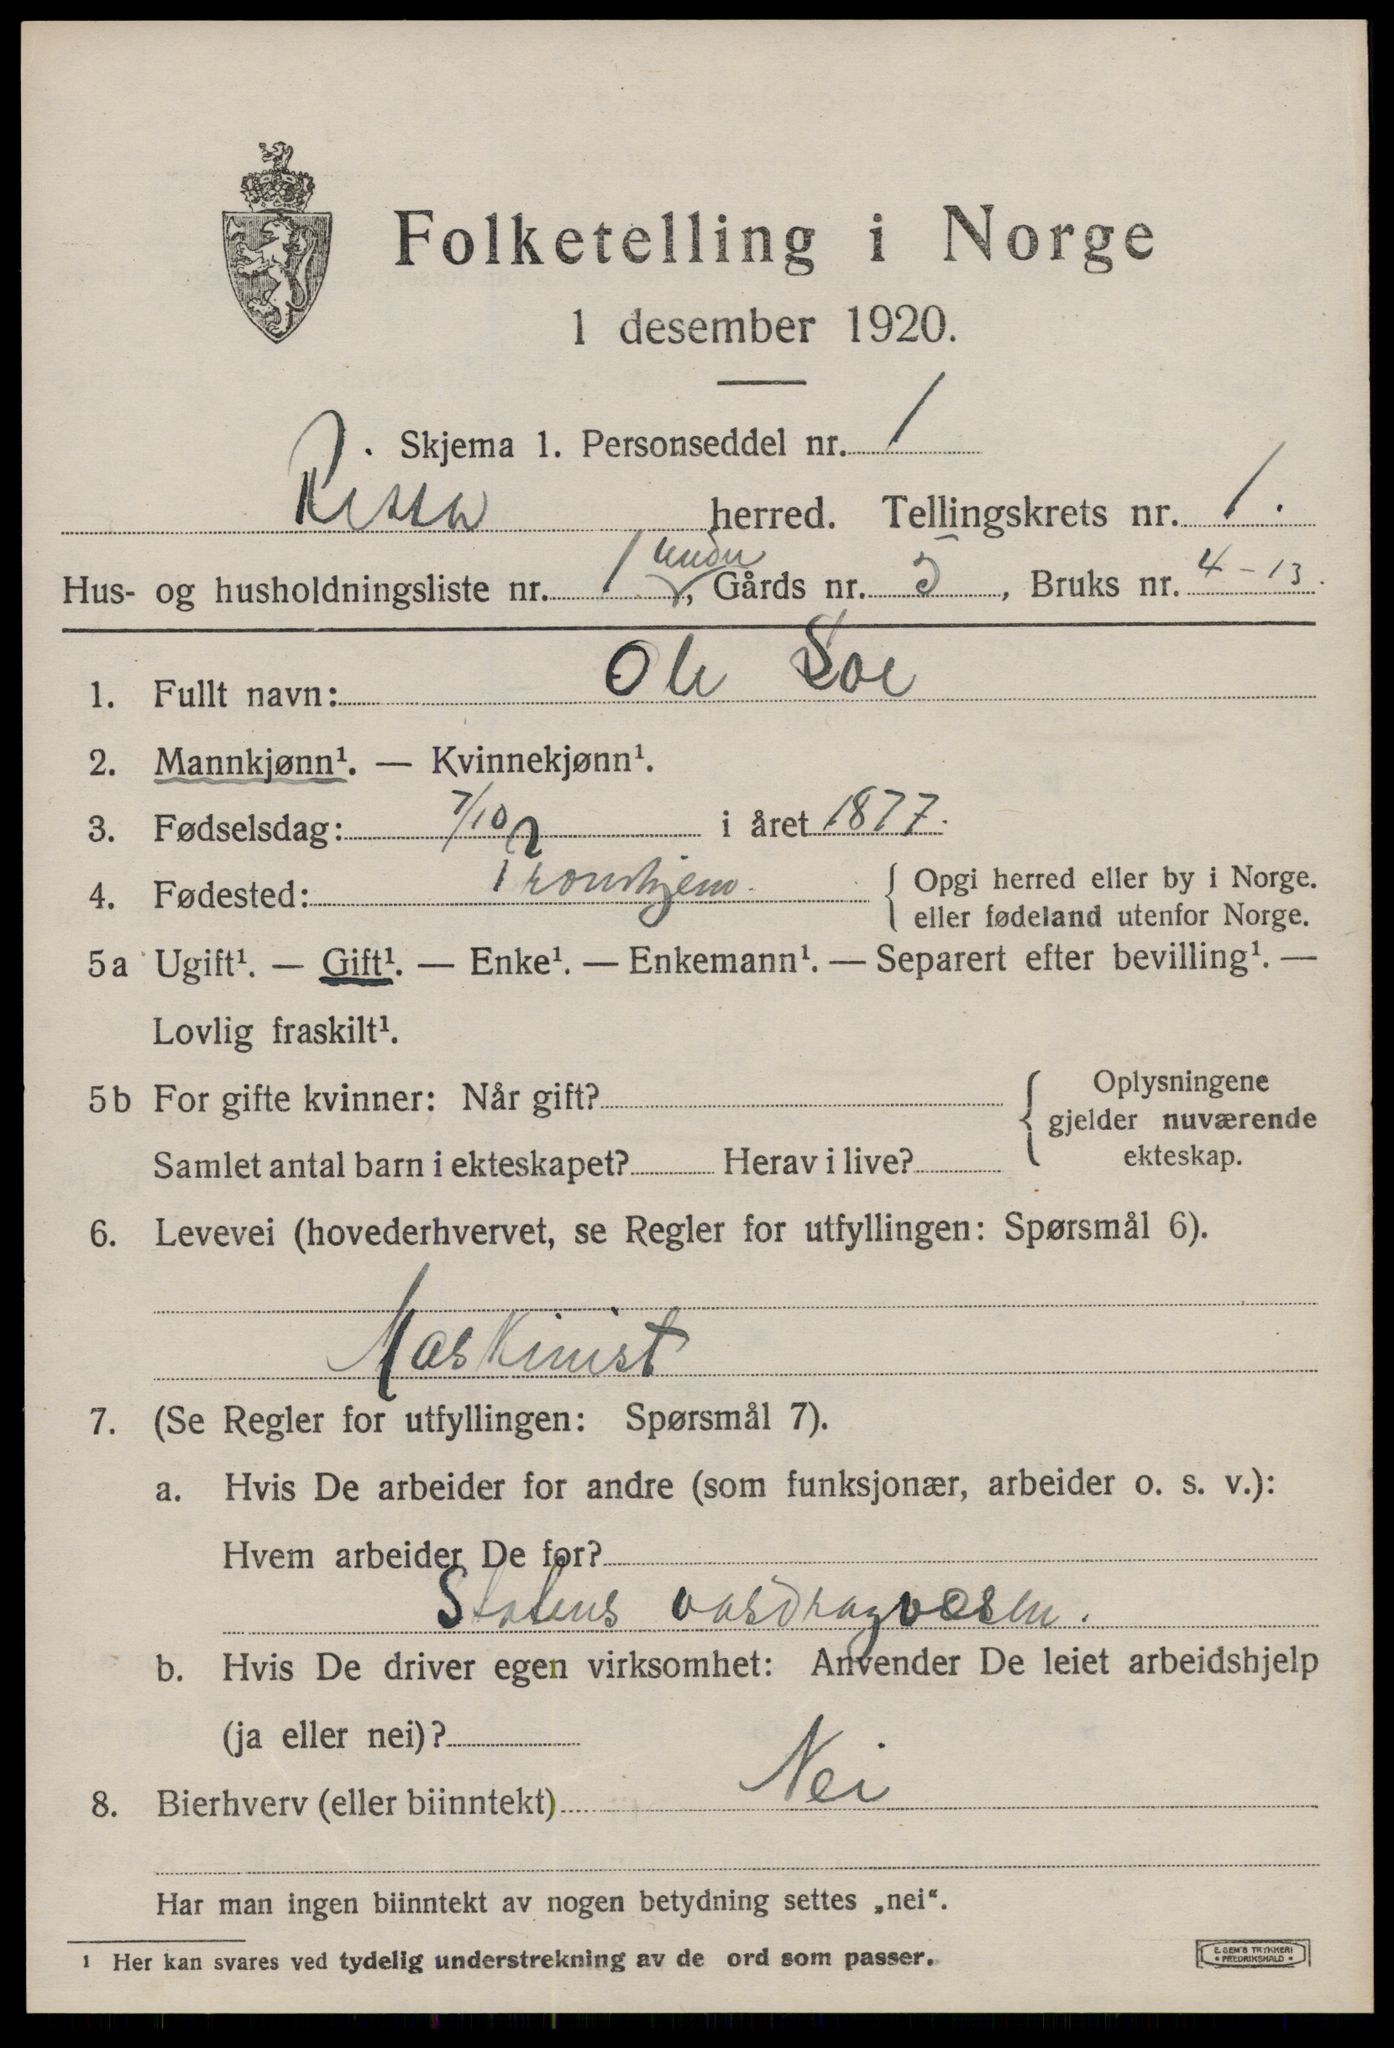 Folketelling i Norge
1 desember 1920.
Skjema 1. Personseddel nr. 1
Rissa herred. Tellingskrets nr. 1.
Hus- og husholdningsliste nr. 1 under, Gårds nr. 5, Bruks nr. 4-13.
1. Fullt navn: Ole Soe
2. Mannkjønn¹. — Kvinnekjønn¹.
3. Fødselsdag: 7/10 i året 1877.
4. Fødested: Tronhjem. { Opgi herred eller by i Norge.
eller fødeland utenfor Norge.
5a Ugift¹. — Gift¹. — Enke¹. — Enkemann¹. — Separert efter bevilling¹. —
Lovlig fraskilt¹.
5b For gifte kvinner: Når gift? { Oplysningene
gjelder nuværende
ekteskap.
Samlet antal barn i ekteskapet? Herav i live?
6. Levevei (hovederhvervet, se Regler for utfyllingen: Spørsmål 6).
Maskinist
7. (Se Regler for utfyllingen: Spørsmål 7).
a. Hvis De arbeider for andre (som funksjonær, arbeider o. s. v.):
Hvem arbeider De for?
Statens vasdragvæsen.
b. Hvis De driver egen virksomhet: Anvender De leiet arbeidshjelp
(ja eller nei)?
8. Bierhverv (eller biinntekt) Nei
Har man ingen biinntekt av nogen betydning settes „nei“.
¹ Her kan svares ved tydelig understrekning av de ord som passer.
E. SEM'S TRYKKERI
• FREDRIKSHALD •